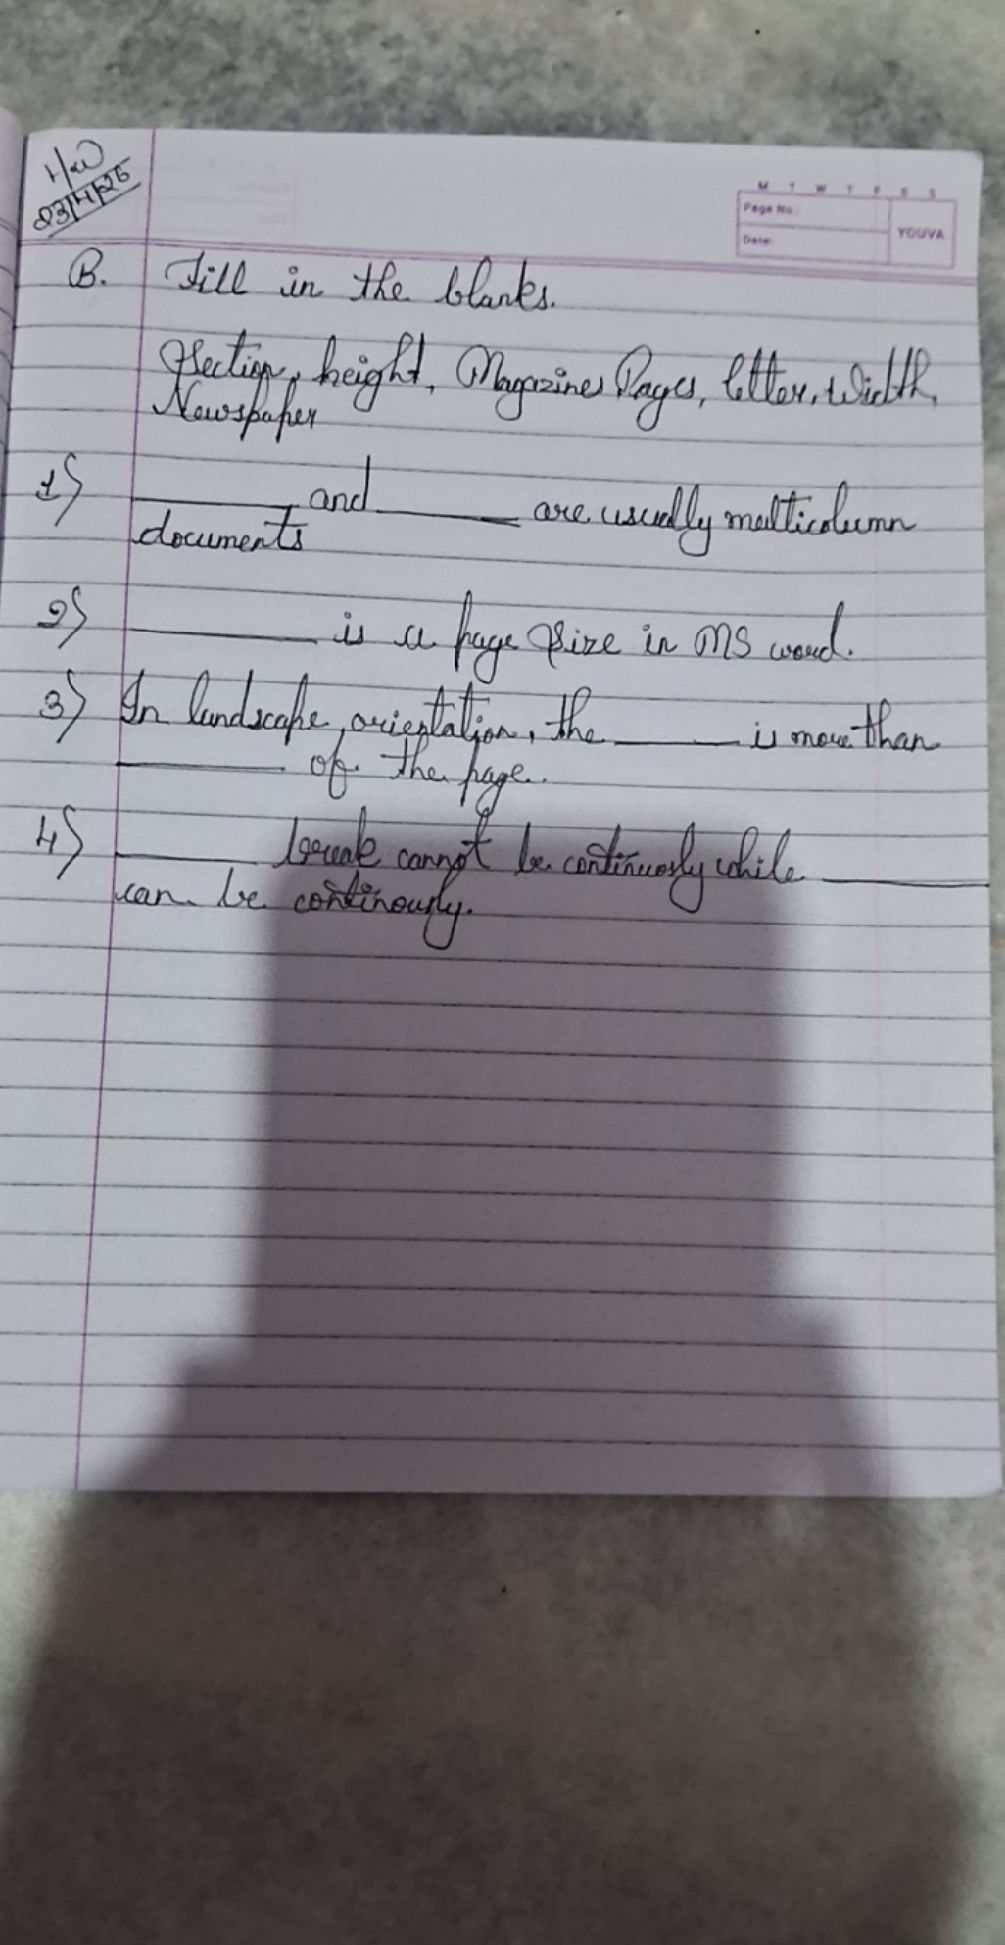 H/W
23/4/26
M T W T F S S
Page No.:
Date:
YOUVA
B. Fill in the blanks.
Section, height, Magazines Pages, letter, width,
Newspaper
1) ______ and ______ are usually multicolumn
documents
2) ______ is a page size in MS word.
3) In landscape orientation, the ______ is more than
______ of the page.
4) ______ break cannot be continuosly while ______
can be continously.